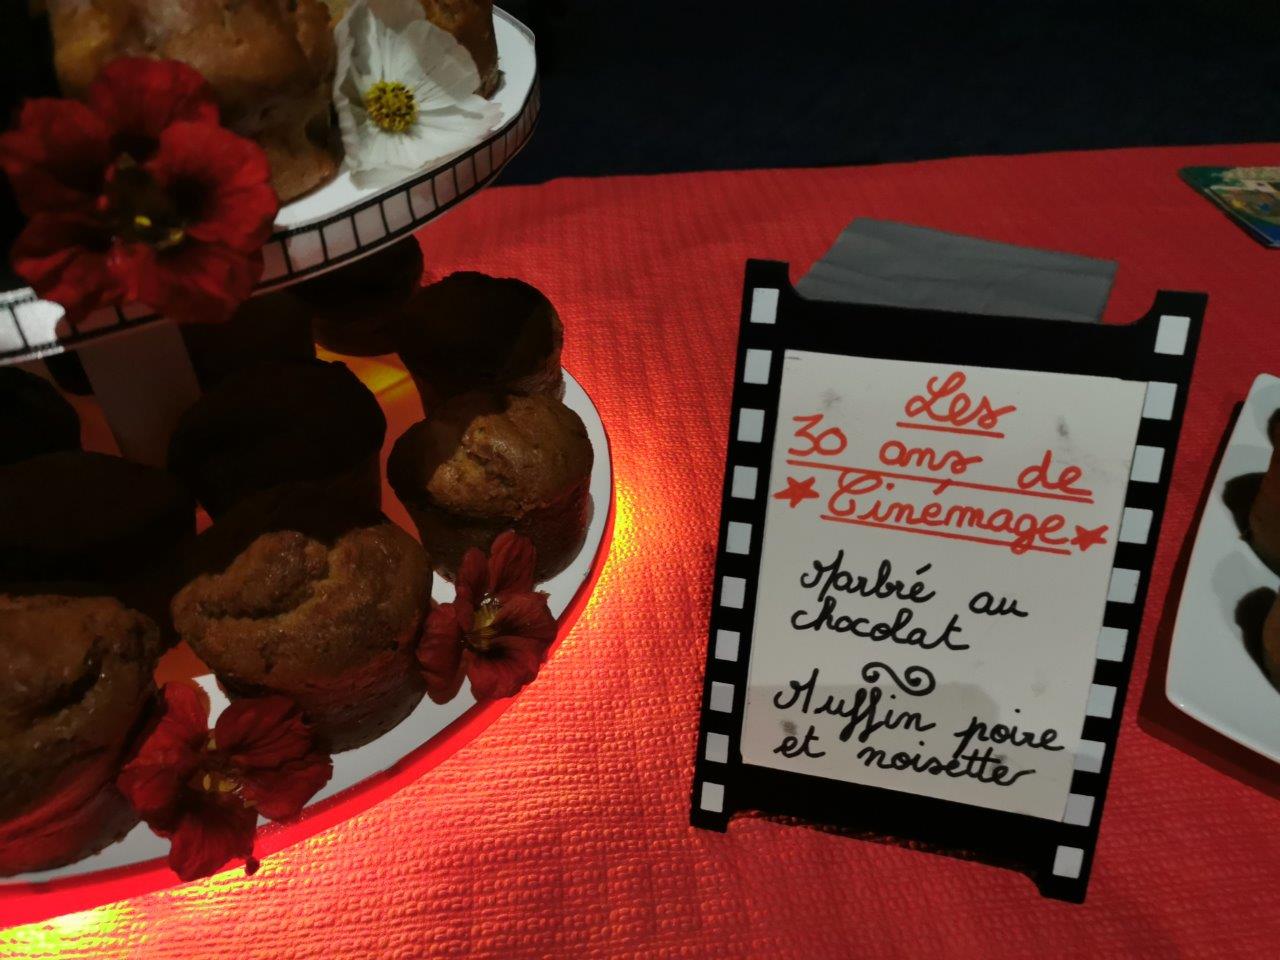 Les
30 ans de
Cinémage
Marbré au
chocolat
Muffin poire
et noisette